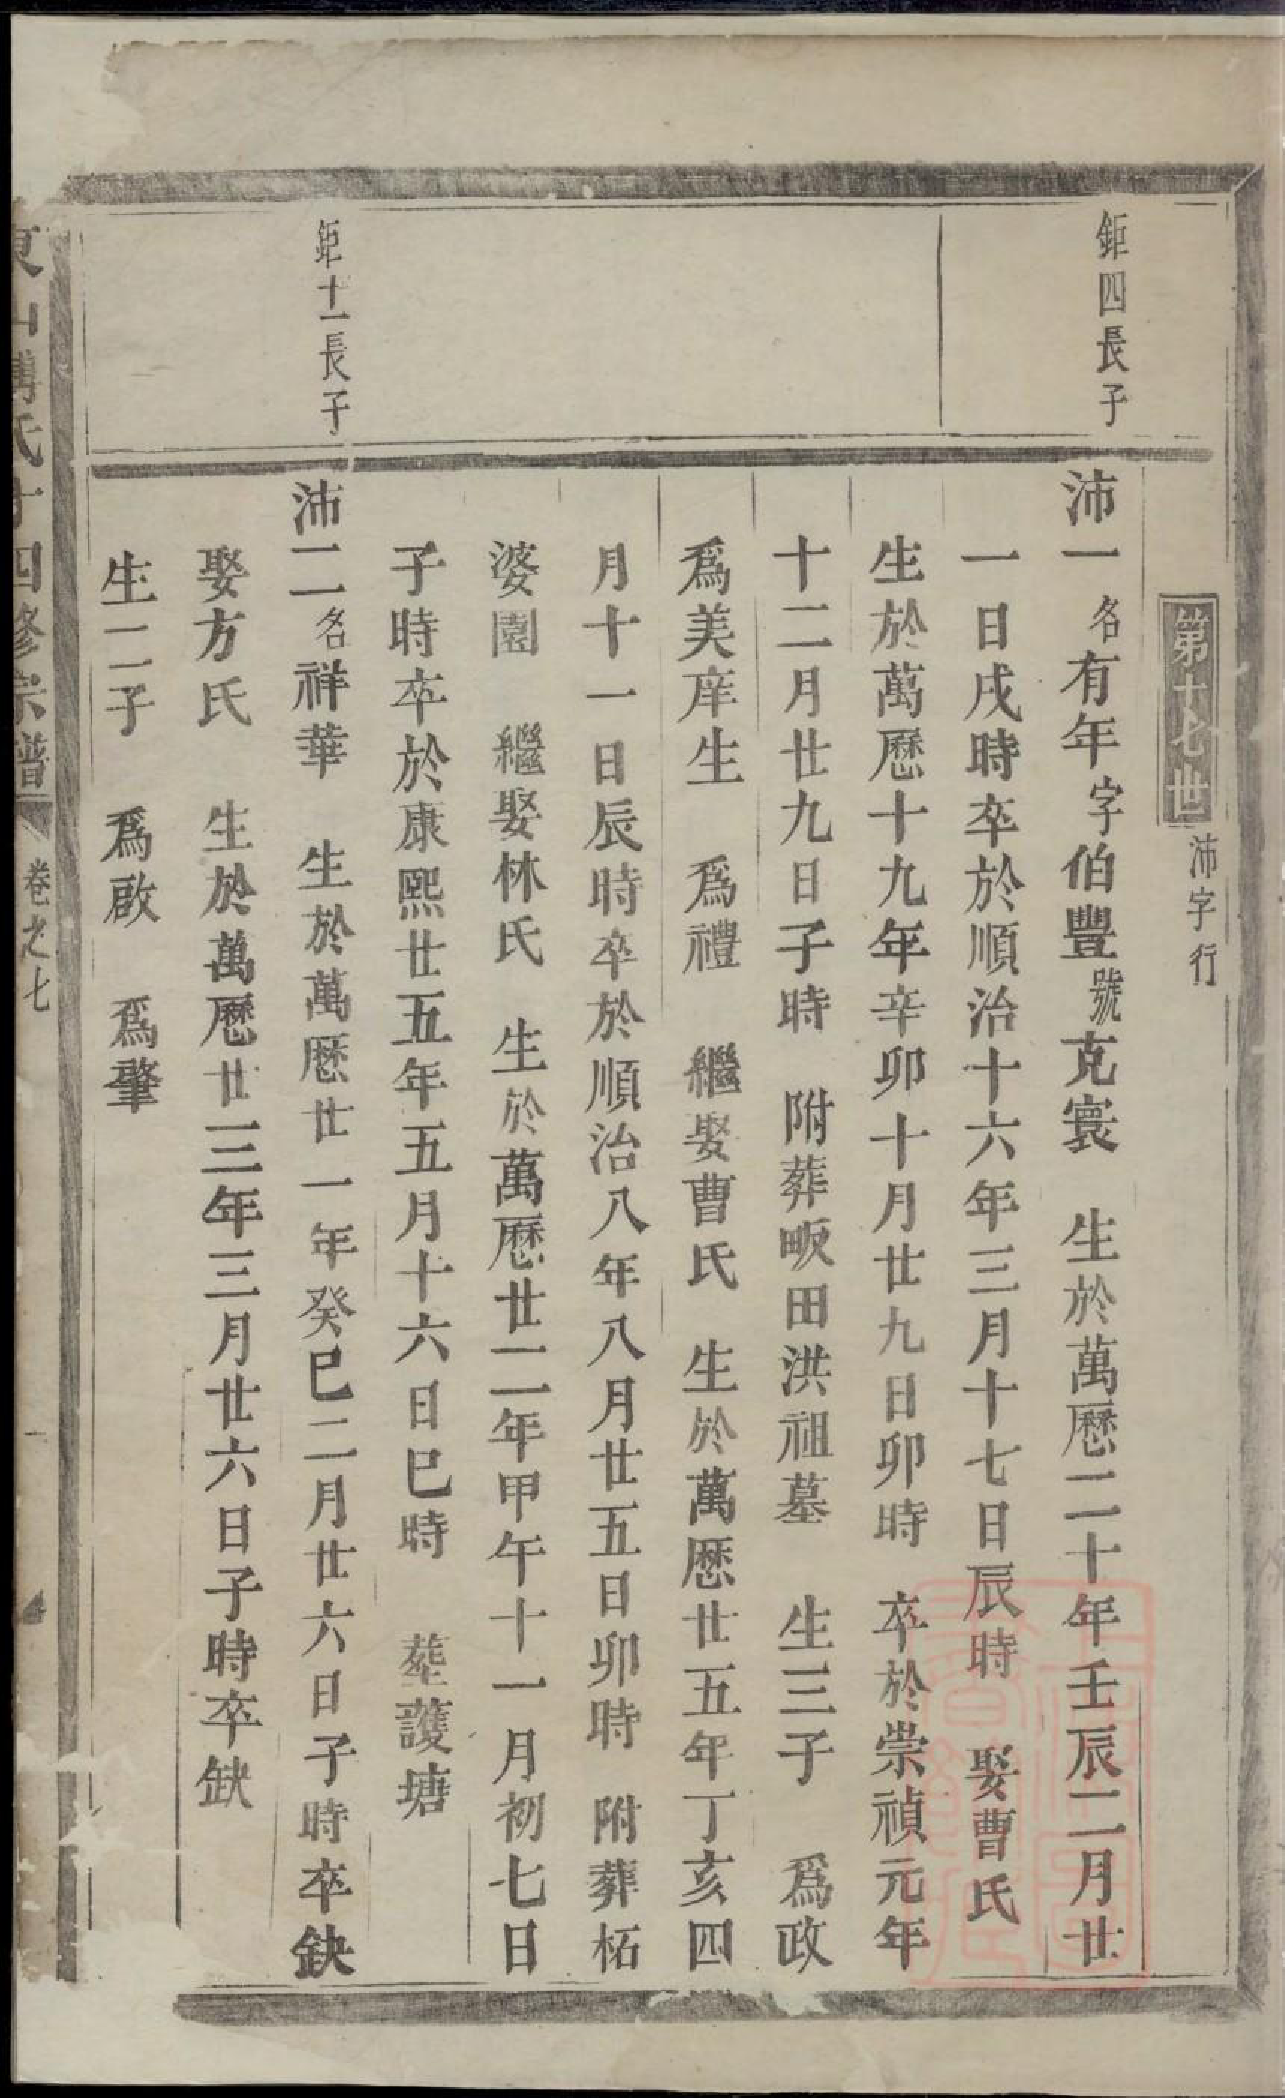 第十七世 沛字行
鉅四長子
沛一名有年字伯豐號克寰 生於萬厯二十年壬辰二月廿
一日戌時卒於順治十六年三月十七日辰時 娶曹氏
生於萬厯十九年辛卯十月廿九日卯時 卒於崇禎元年
十二月廿九日子時 附葬畈田洪祖墓 生三子 爲政
爲美庠生 爲禮 繼娶曹氏 生於萬厯廿五年丁亥四
月十一日辰時卒於順治八年八月廿五日卯時 附葬柘
婆園 繼娶林氏 生於萬厯廿二年甲午十一月初七日
子時卒於康熙廿五年五月十六日巳時 塟護塘
鉅十一長子
沛二名祥華 生於萬厯廿一年癸巳二月廿六日子時卒缺
娶方氏 生於萬厯廿三年三月廿六日子時卒缺
生二子 爲啟 爲肇
東山傅氏十四修宗譜 卷之七